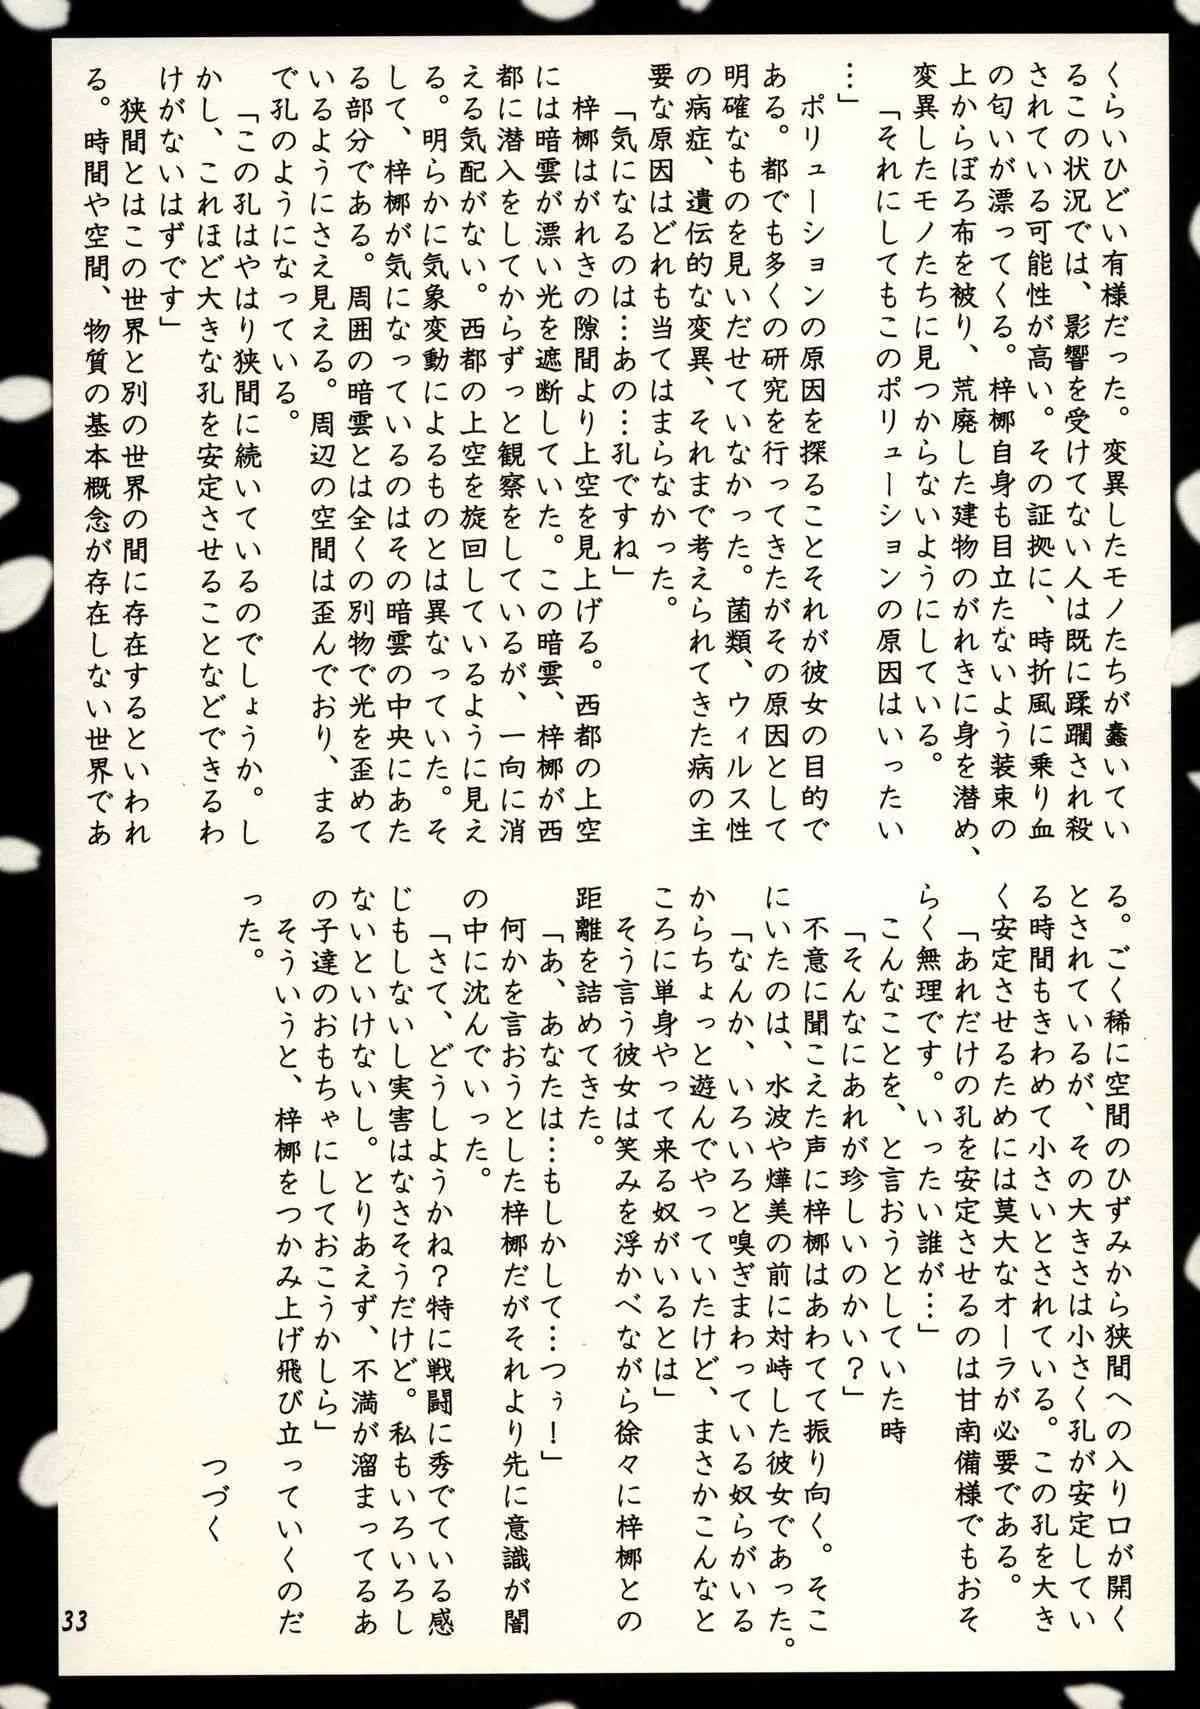 くらいひどい有様だった。変異したモノたちが蠢いてい
るこの状況では、影響を受けてない人は既に蹂躙され殺
されている可能性が高い。その証拠に、時折風に乗り血
の匂いが漂ってくる。梓梛自身も目立たないよう装束の
上からぼろ布を被り、荒廃した建物のがれきに身を潜め、
変異したモノたちに見つからないようにしている。
「それにしてもこのポリューションの原因はいったい
…」
ポリューションの原因を探ることそれが彼女の目的で
ある。都でも多くの研究を行ってきたがその原因として
明確なものを見いだせていなかった。菌類、ウィルス性
の病症、遺伝的な変異、それまで考えられてきた病の主
要な原因はどれも当てはまらなかった。
「気になるのは…あの…孔ですね」
梓梛はがれきの隙間より上空を見上げる。西都の上空
には暗雲が漂い光を遮断していた。この暗雲、梓梛が西
都に潜入をしてからずっと観察をしているが、一向に消
える気配がない。西都の上空を旋回しているように見え
る。明らかに気象変動によるものとは異なっていた。そ
して、梓梛が気になっているのはその暗雲の中央にあた
る部分である。周囲の暗雲とは全くの別物で光を歪めて
いるようにさえ見える。周辺の空間は歪んでおり、まる
で孔のようになっている。
「この孔はやはり狭間に続いているのでしょうか。し
かし、これほど大きな孔を安定させることなどできるわ
けがないはずです」
狭間とはこの世界と別の世界の間に存在するといわれ
る。時間や空間、物質の基本概念が存在しない世界であ
る。ごく稀に空間のひずみから狭間への入り口が開く
とされているが、その大きさは小さく孔が安定してい
る時間もきわめて小さいとされている。この孔を大き
く安定させるためには莫大なオーラが必要である。
「あれだけの孔を安定させるのは甘南備様でもおそ
らく無理です。いったい誰が…」
こんなことを、と言おうとしていた時
「そんなにあれが珍しいのかい？」
不意に聞こえた声に梓梛はあわてて振り向く。そこ
にいたのは、水波や燁美の前に対峙した彼女であった。
「なんか、いろいろと嗅ぎまわっている奴らがいる
からちょっと遊んでやっていたけど、まさかこんなと
ころに単身やって来る奴がいるとは」
そう言う彼女は笑みを浮かべながら徐々に梓梛との
距離を詰めてきた。
「あ、あなたは…もしかして…つぅ！」
何かを言おうとした梓梛だがそれより先に意識が闇
の中に沈んでいった。
「さて、どうしようかね？特に戦闘に秀でている感
じもしないし実害はなさそうだけど。私もいろいろし
ないといけないし。とりあえず、不満が溜まってるあ
の子達のおもちゃにしておこうかしら」
そういうと、梓梛をつかみ上げ飛び立っていくのだ
った。
つづく
33